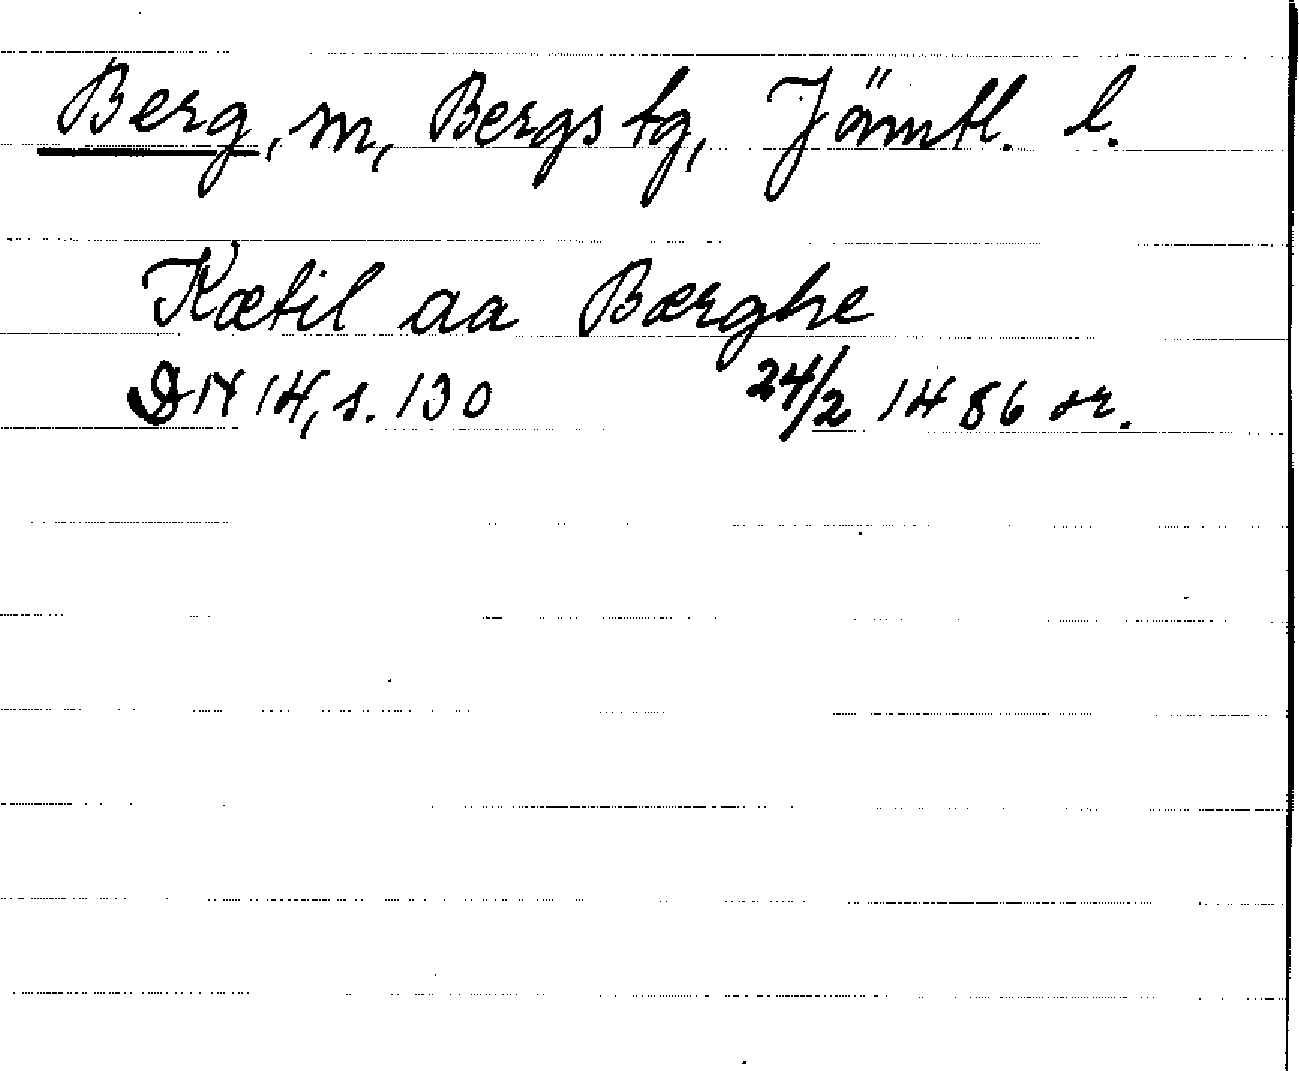 Berg, sn, Bergs tg, Jämtl. l.
Kætil aa Bærghe
DN 14, s. 130 24/2 1486 or.